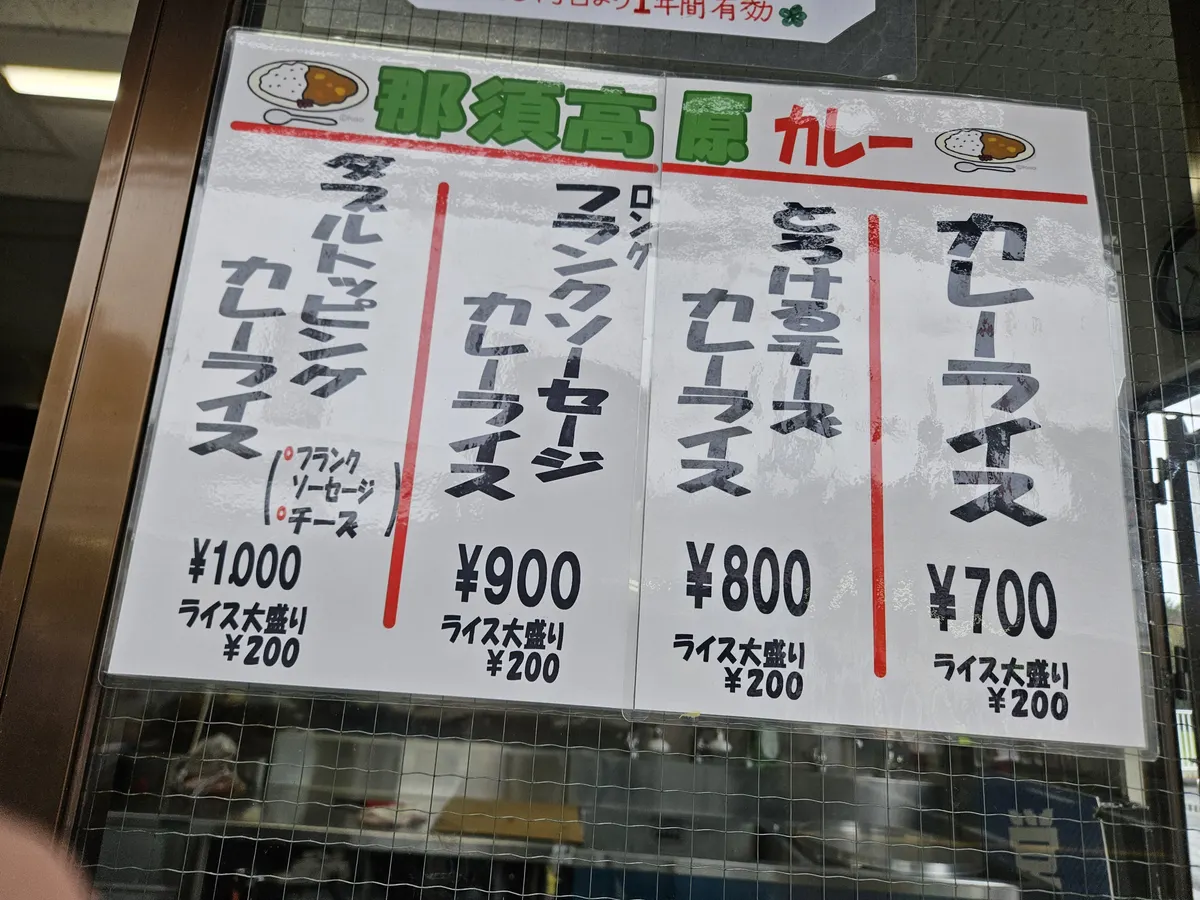 1年間有効
那須高原カレー
カレーライス
¥700
ライス大盛り
¥200
とろけるチーズ
カレーライス
¥800
ライス大盛り
¥200
ロング
フランクソーセージ
カレーライス
¥900
ライス大盛り
¥200
ダブルトッピング
カレーライス
(フランク
ソーセージ
チーズ)
¥1,000
ライス大盛り
¥200